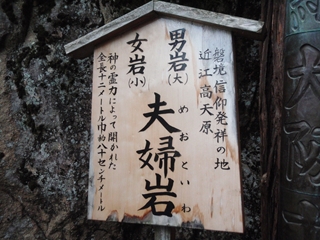 磐境信仰発祥の地
近江高天原
男岩(大)
女岩(小)
夫婦岩
めおといわ
神の霊力によって開かれた
全長十二メートル巾約八十センチメートル